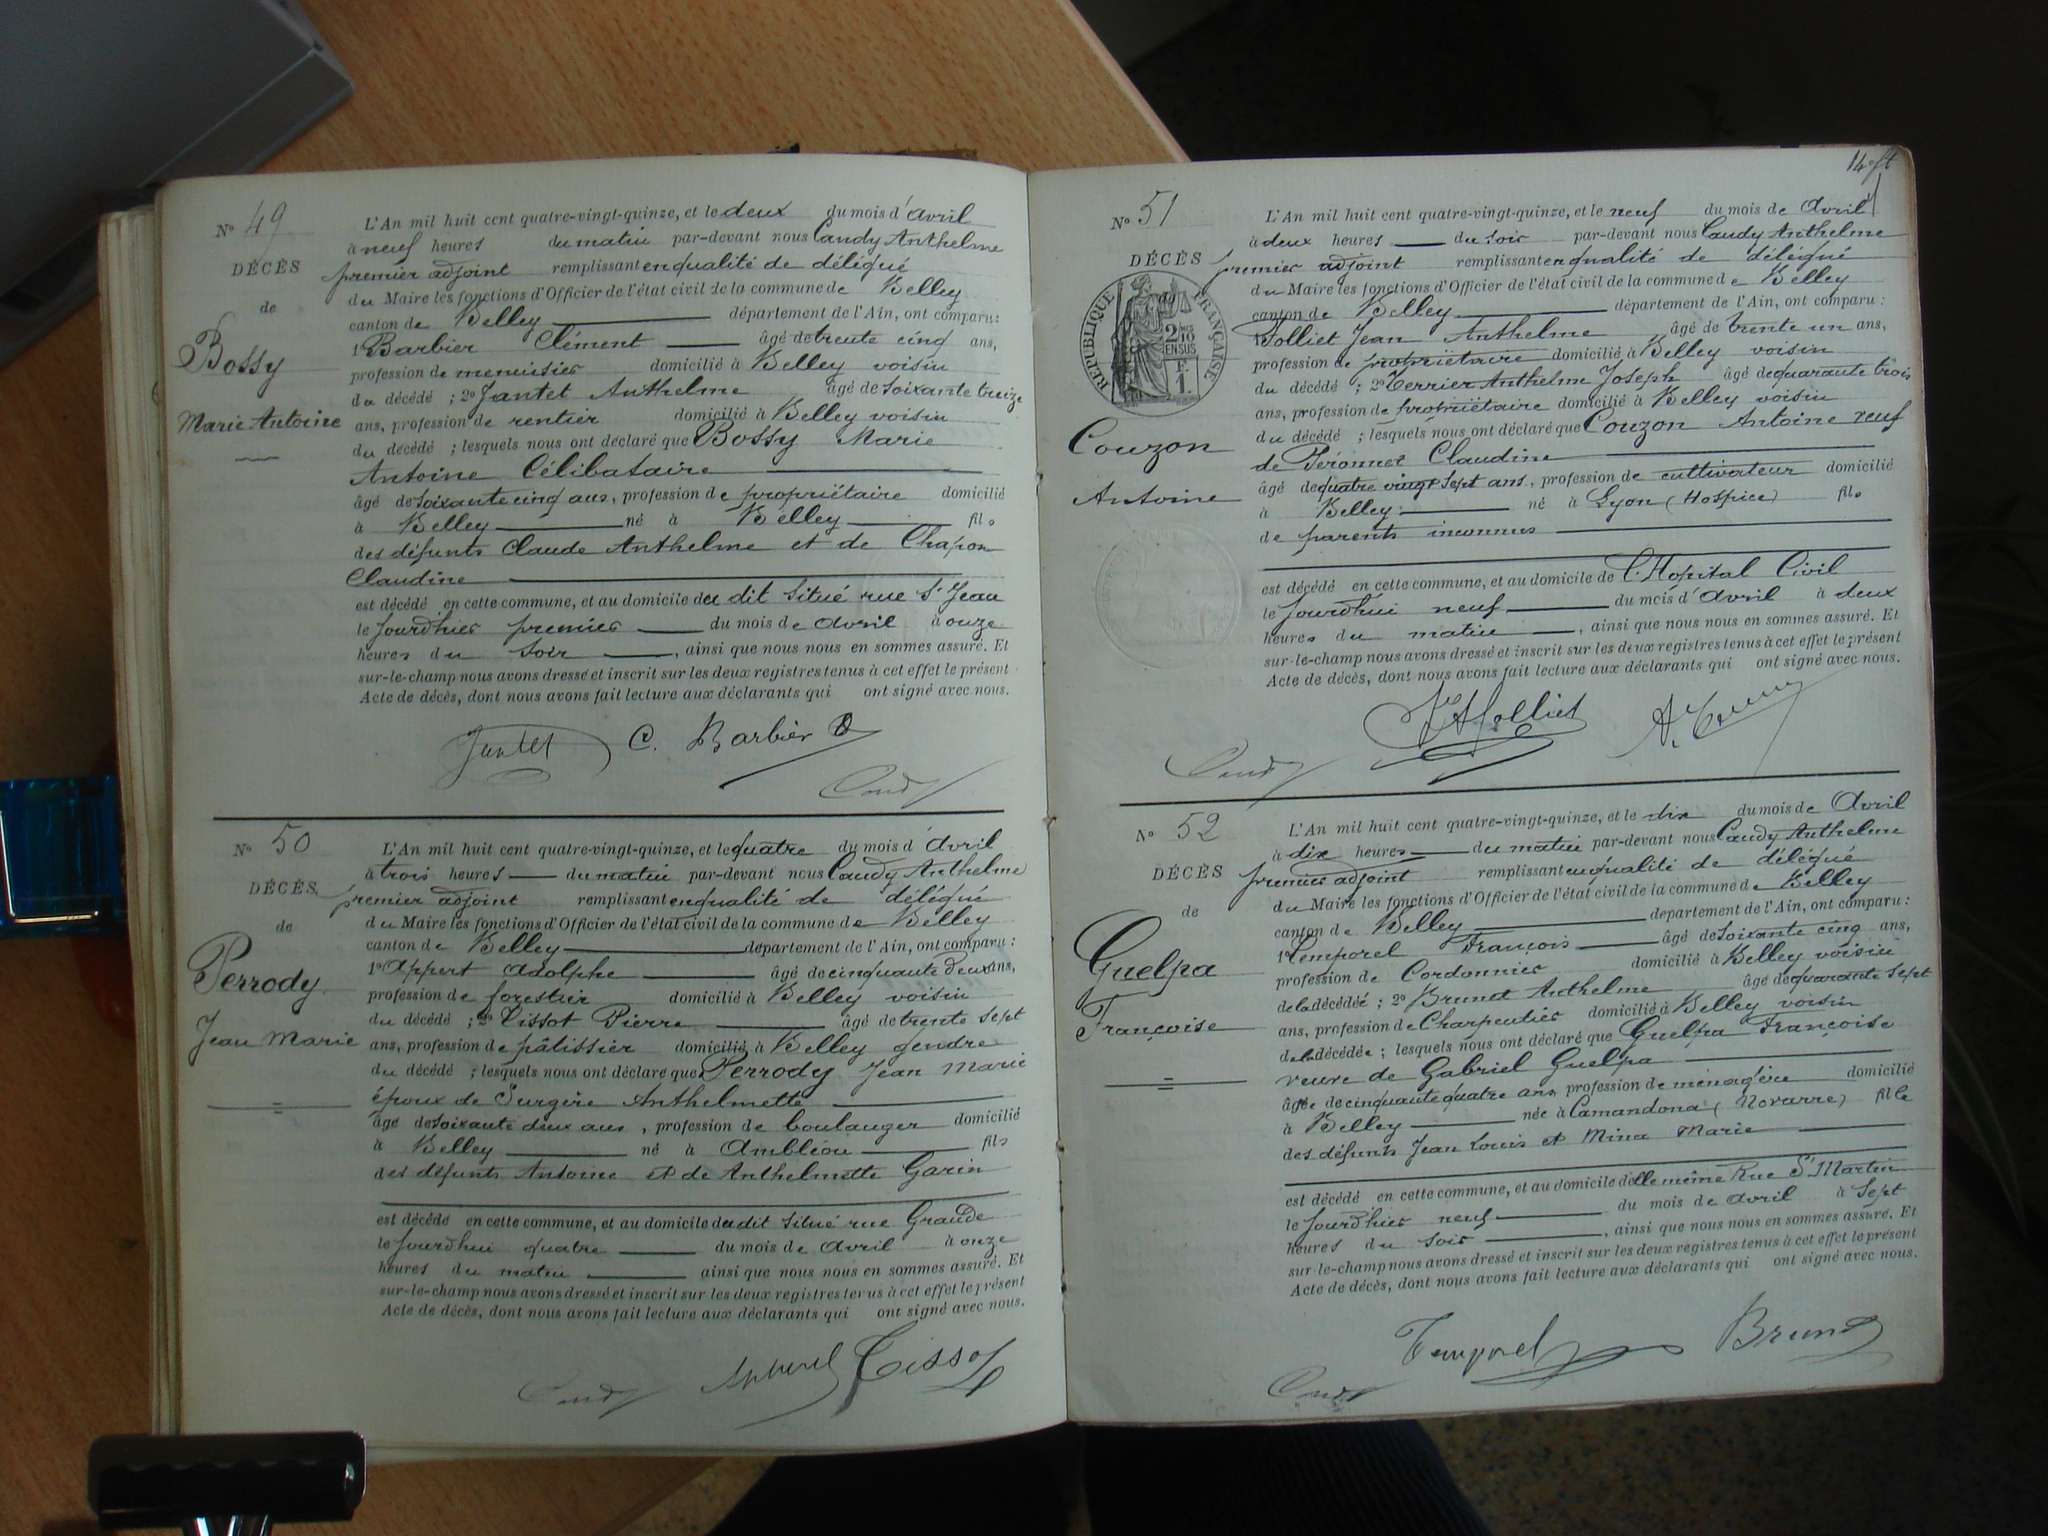 N° 49
DÉCÈS
de
Bossy
Marie Antoine
L'An mil huit cent quatre-vingt-quinze, et le deux du mois d'avril
à neuf heures du matin par-devant nous Caudy Anthelme
premier adjoint remplissant en qualité de délégué
du Maire les fonctions d'Officier de l'état civil de la commune de Belley
canton de Belley département de l'Ain, ont comparu :
1° Barbier Clément âgé de trente cinq ans,
profession de menuisier domicilié à Belley voisin
du décédé ; 2° Jantet Anthelme âgé de soixante treize
ans, profession de rentier domicilié à Belley voisin
du décédé ; lesquels nous ont déclaré que Bossy Marie
Antoine Célibataire
âgé de soixante cinq ans, profession de propriétaire domicilié
à Belley né à Belley fils
des défunts Claude Anthelme et de Chapon
Claudine
est décédé en cette commune, et au domicile du dit situé rue St Jean
le jourd'hier premier du mois de avril à onze
heures du soir, ainsi que nous nous en sommes assuré. Et
sur-le-champ nous avons dressé et inscrit sur les deux registres tenus à cet effet le présent
Acte de décès, dont nous avons fait lecture aux déclarants qui ont signé avec nous.
Jantet C. Barbier
Caudy
N° 50
DÉCÈS
de
Perrody
Jean Marie
L'An mil huit cent quatre-vingt-quinze, et le quatre du mois d'avril
à trois heures du matin par-devant nous Caudy Anthelme
premier adjoint remplissant en qualité de délégué
du Maire les fonctions d'Officier de l'état civil de la commune de Belley
canton de Belley département de l'Ain, ont comparu :
1° Appert Adolphe âgé de cinquante deux ans,
profession de forestier domicilié à Belley voisin
du décédé ; 2° Tissot Pierre âgé de trente sept
ans, profession de pâtissier domicilié à Belley gendre
du décédé ; lesquels nous ont déclaré que Perrody Jean Marie
époux de Surgère Anthelmette
âgé de soixante deux ans, profession de boulanger domicilié
à Belley né à Ambléon fils
des défunts Antoine et de Anthelmette Garin
est décédé en cette commune, et au domicile du dit situé rue Grande
le jourd'hui quatre du mois de avril à onze
heures du matin ainsi que nous nous en sommes assuré. Et
sur-le-champ nous avons dressé et inscrit sur les deux registres tenus à cet effet le présent
Acte de décès, dont nous avons fait lecture aux déclarants qui ont signé avec nous.
Caudy Appert Tissot
N° 51
DÉCÈS
RÉPUBLIQUE FRANÇAISE
Couzon
Antoine
L'An mil huit cent quatre-vingt-quinze, et le neuf du mois de Avril
à deux heures du soir par-devant nous Caudy Anthelme
premier adjoint remplissant en qualité de délégué
du Maire les fonctions d'Officier de l'état civil de la commune de Belley
canton de Belley département de l'Ain, ont comparu :
1° Jolliet Jean Anthelme âgé de trente un ans,
profession de propriétaire domicilié à Belley voisin
du décédé ; 2° Terrier Anthelme Joseph âgé de quarante trois
ans, profession de propriétaire domicilié à Belley voisin
du décédé ; lesquels nous ont déclaré que Couzon Antoine veuf
de Péronnet Claudine
âgé de quatre vingt sept ans, profession de cultivateur domicilié
à Belley né à Lyon (Hospice) fils
de parents inconnus
est décédé en cette commune, et au domicile de l'Hopital Civil
le jourd'hui neuf du mois d'avril à deux
heures du matin, ainsi que nous nous en sommes assuré. Et
sur-le-champ nous avons dressé et inscrit sur les deux registres tenus à cet effet le présent
Acte de décès, dont nous avons fait lecture aux déclarants qui ont signé avec nous.
Caudy Jolliet
N° 52
DÉCÈS
de
Guelpa
Françoise
L'An mil huit cent quatre-vingt-quinze, et le dix du mois de Avril
à dix heures du matin par-devant nous Caudy Anthelme
premier adjoint remplissant en qualité de délégué
du Maire les fonctions d'Officier de l'état civil de la commune de Belley
canton de Belley département de l'Ain, ont comparu :
1° Temporel François âgé de soixante cinq ans,
profession de Cordonnier domicilié à Belley voisin
de la décédée ; 2° Brunet Anthelme âgé de quarante sept
ans, profession de Charpentier domicilié à Belley voisin
de la décédée ; lesquels nous ont déclaré que Guelpa Françoise
veuve de Gabriel Guelpa
âgée de cinquante quatre ans, profession de ménagère domicilié
à Belley née à Camandona (Novarre) fille
des défunts Jean Louis et Mina Marie
est décédé en cette commune, et au domicile d'elle même Rue St Martin
le jourd'hier neuf du mois de avril à sept
heures du soir, ainsi que nous nous en sommes assuré. Et
sur-le-champ nous avons dressé et inscrit sur les deux registres tenus à cet effet le présent
Acte de décès, dont nous avons fait lecture aux déclarants qui ont signé avec nous.
Temporel Brunet
Caudy